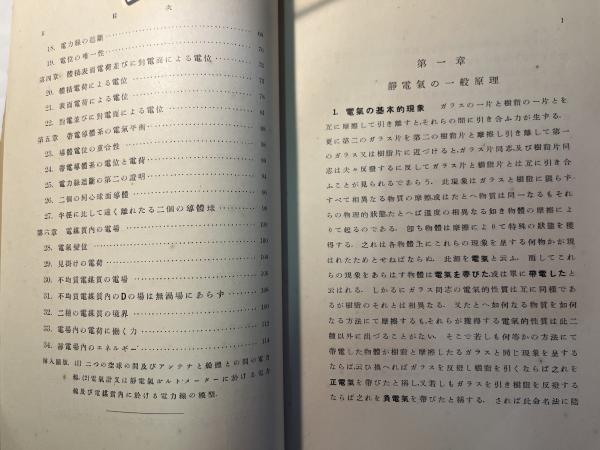 2 目次
18. 電力線の屈折 68
19. 電位の唯一性 70
第四章 體積表面電荷並びに對電面による電位 73
20. 體積電荷による電位 76
21. 表面電荷による電位 78
22. 對電並びに對電面による電位 81
第五章 帶電導體系の電氣平衡
23. 導體電位の重合性
24. 帶電導體系の電位と電荷
25. 電力線屈折の第二の證明
26. 二個の同心球面導體
27. 半徑に比して遠く離れたる二個の導體球 98
第六章 電媒質內の電場 100
28. 電氣變位 100
29. 見掛けの電荷 104
30. 不均質電媒質の電場 104
31. 不均質電媒質內のDの場は無渦場にあらず 106
32. 二種の電媒質の境界 108
33. 電場內の電荷に働く力
34. 靜電場內のエネルギー 114
挿入圖版. (1) 二つの金球の間及びアンテナと船體との間の電力
線. (2) 電氣計又は靜電氣ボルト・メーターに於ける電力
線及び電媒質內に於ける電力線の模型.
1
第一章
靜電氣の一般原理
1. 電氣の基本的現象 ガラスの一片と樹脂の一片とを
互に摩擦して引き離すと,それらの間に引き合ふ力が生ずる.
更に第二のガラス片を第二の樹脂片と摩擦し引き離して第一
のガラス又は樹脂片に近づけると,ガラス片同志及び樹脂片同
志は夫々反撥するに反してガラス片と樹脂片とは互に引き合
ふことが見られるであらう. 此現象はガラスと樹脂に限らず,
すべて相異なる物質の摩擦或はたとへ物質は同一なるもそれ
らの物理的狀態たとへば溫度の相異なる如き物體の摩擦によ
りて起るのである. 卽ち物體は摩擦によりて特殊の狀態を獲
得する. 之れは各物體上にこれらの現象を呈する何物かが現
はれたためとせねばならぬ. 此招を電氣と云ふ. 而してこれ
らの現象をあらはす物體は電氣を帶びた或は單に帶電したと
云はれる. しかるにガラス同志の電氣的性質は互に同樣であ
るが樹脂のそれとは相異なる. 又たとへ如何なる物質を如何
なる方法にて摩擦するも,それらが獲得する電氣的性質は此二
種以外に出づることがない. そこで若しも何等かの方法にて
帶電した物體が樹脂と摩擦したるガラスと同じ現象を呈する
ならば,云ひ換へればガラスを反撥し樹脂を引くならば之れを
正電氣を帶びたと稱し,又若しもガラスを引き樹脂を反撥する
ならば之れを負電氣を帶びたと稱する. されば此命名法に隨